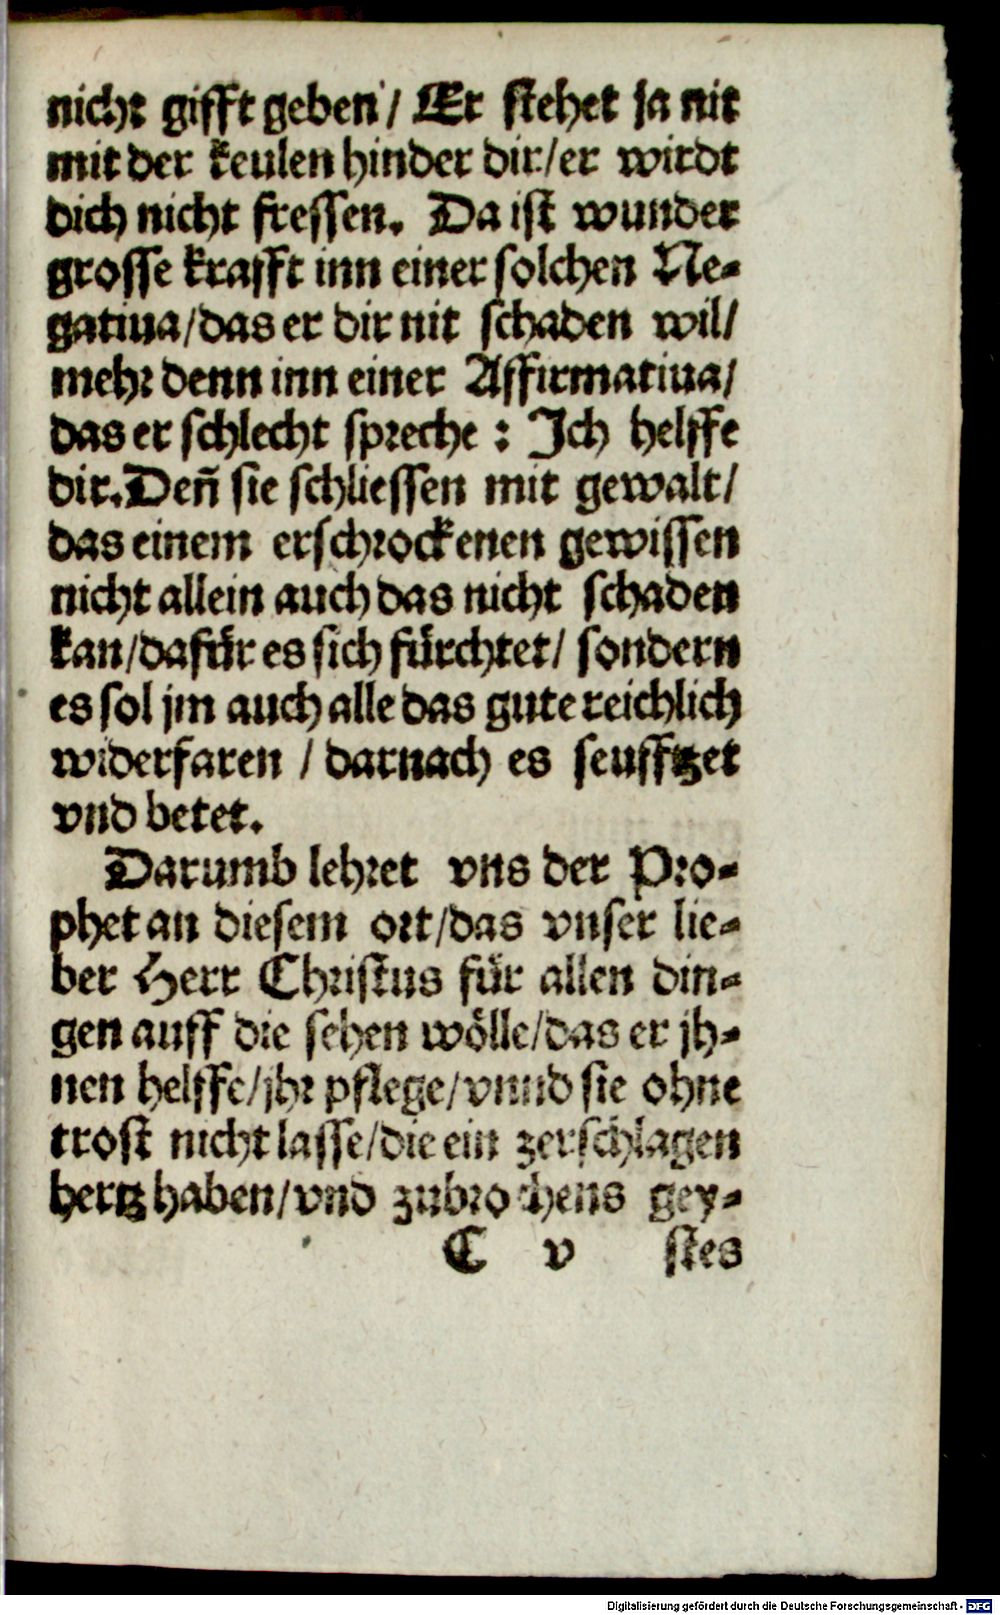 nicht gifft geben / Er stehet ja nit
mit der keulen hinder dir/er wirdt
dich nicht fressen. Da ist wunder
grosse krafft inn einer solchen Ne-
gatiua/das er dir nit schaden wil/
mehr denn inn einer Affirmatiua/
das er schlecht spreche : Ich helffe
dir.Deñ sie schliessen mit gewalt/
das einem erschrockenen gewissen
nicht allein auch das nicht schaden
kan/dafür es sich fürchtet/ sondern
es sol jm auch alle das gute reichlich
widerfaren / darnach es seufftzet
vnd betet.
Darumb lehret vns der Pro-
phet an diesem ort/das vnser lie-
ber Herr Christus für allen din-
gen auff die sehen wölle/das er jh-
nen helffe/jhr pflege/vnnd sie ohne
trost nicht lasse/die ein zerschlagen
hertz haben/vnd zubrochens gey-
C v stes
Digitalisierung gefördert durch die Deutsche Forschungsgemeinschaft - DFG